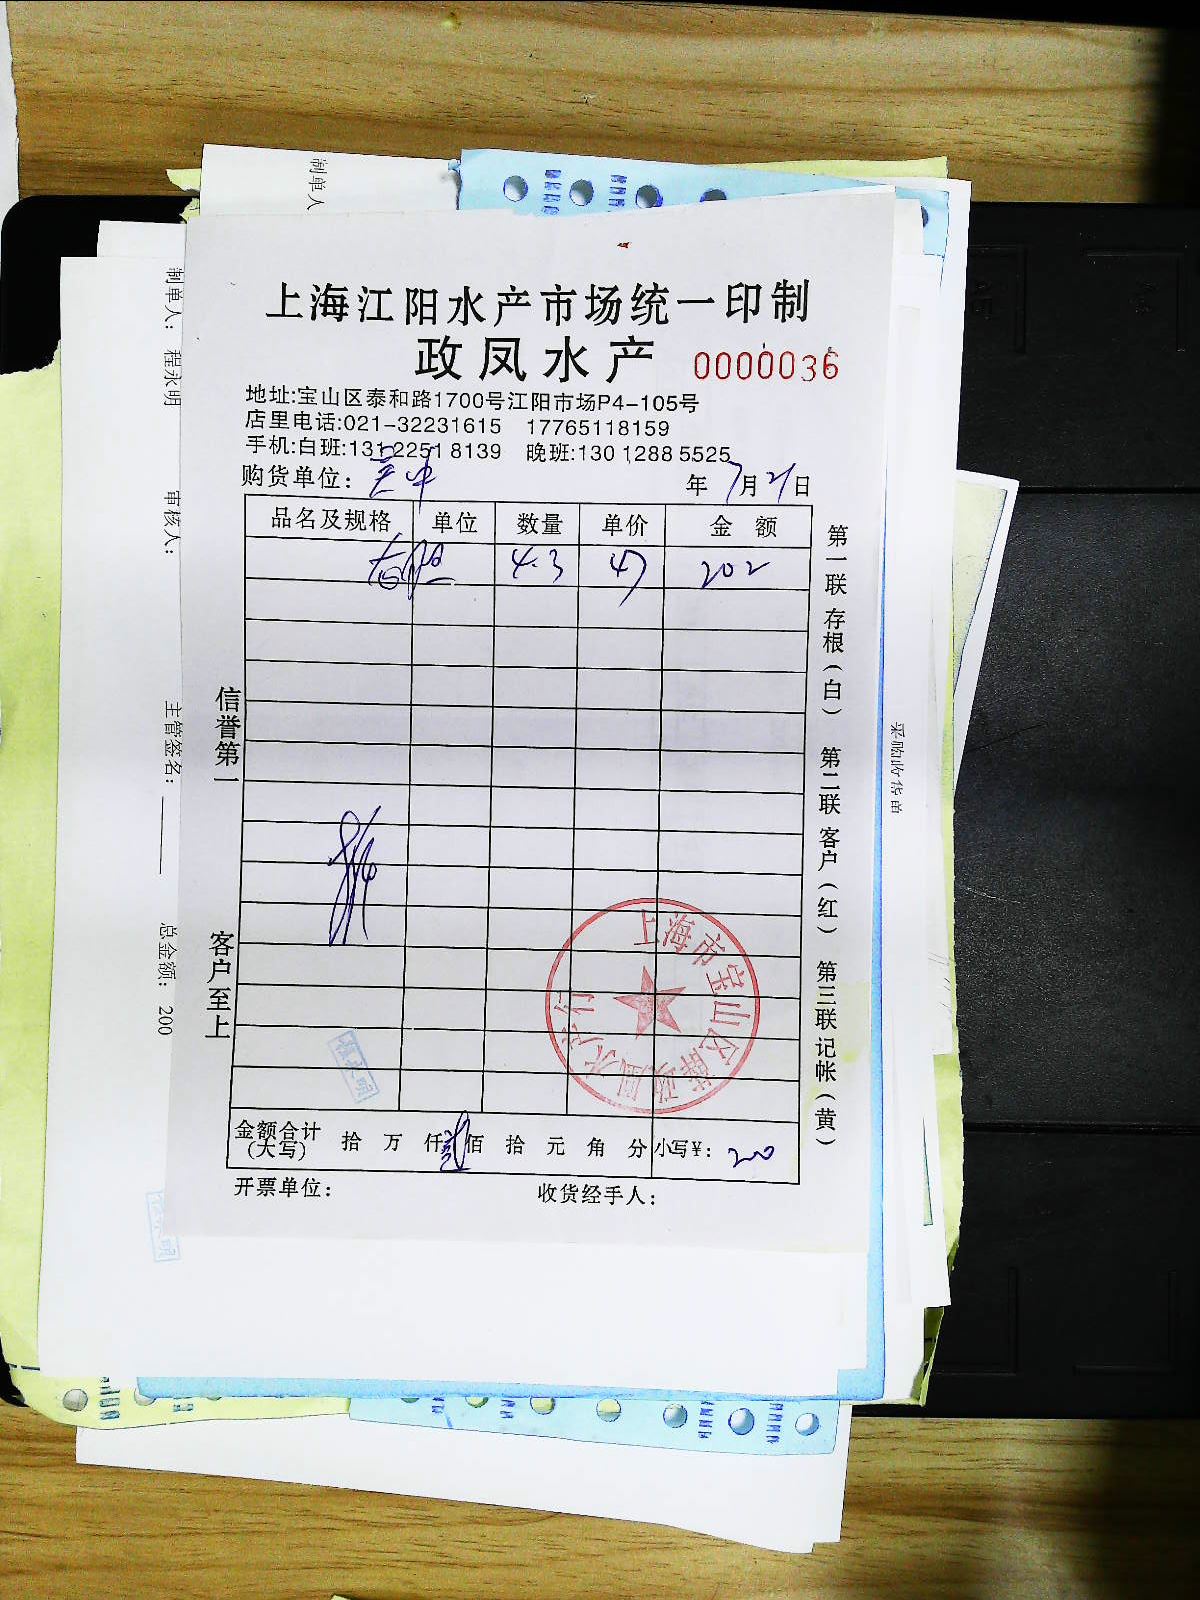 制单人
制单人： 程永明
审核人：
主管签名：
总金额： 200
采购收货单
上海江阳水产市场统一印制
政凤水产 0000036
地址:宝山区泰和路1700号江阳市场P4-105号
店里电话:021-32231615 17765118159
手机:白班:13122518139 晚班:13012885525
购货单位： 年 7月21日
品名及规格 单位 数量 单价 金 额
4.3 47 202
信誉第一
客户至上
第一联 存根（白） 第二联 客户（红） 第三联 记帐（黄）
上海市宝山区薛政凤水产行
程永明
金额合计(大写) 拾 万 仟 贰佰 拾 元 角 分 小写￥: 200
开票单位: 收货经手人: